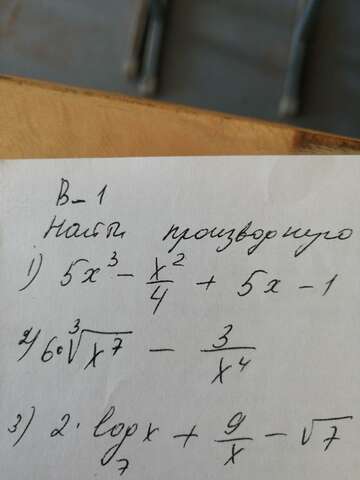 В-1
Найти производную
1) 5x³ - x²/4 + 5x - 1
2) 6·∛(x⁷) - 3/x⁴
3) 2·log₇x + 9/x - √7